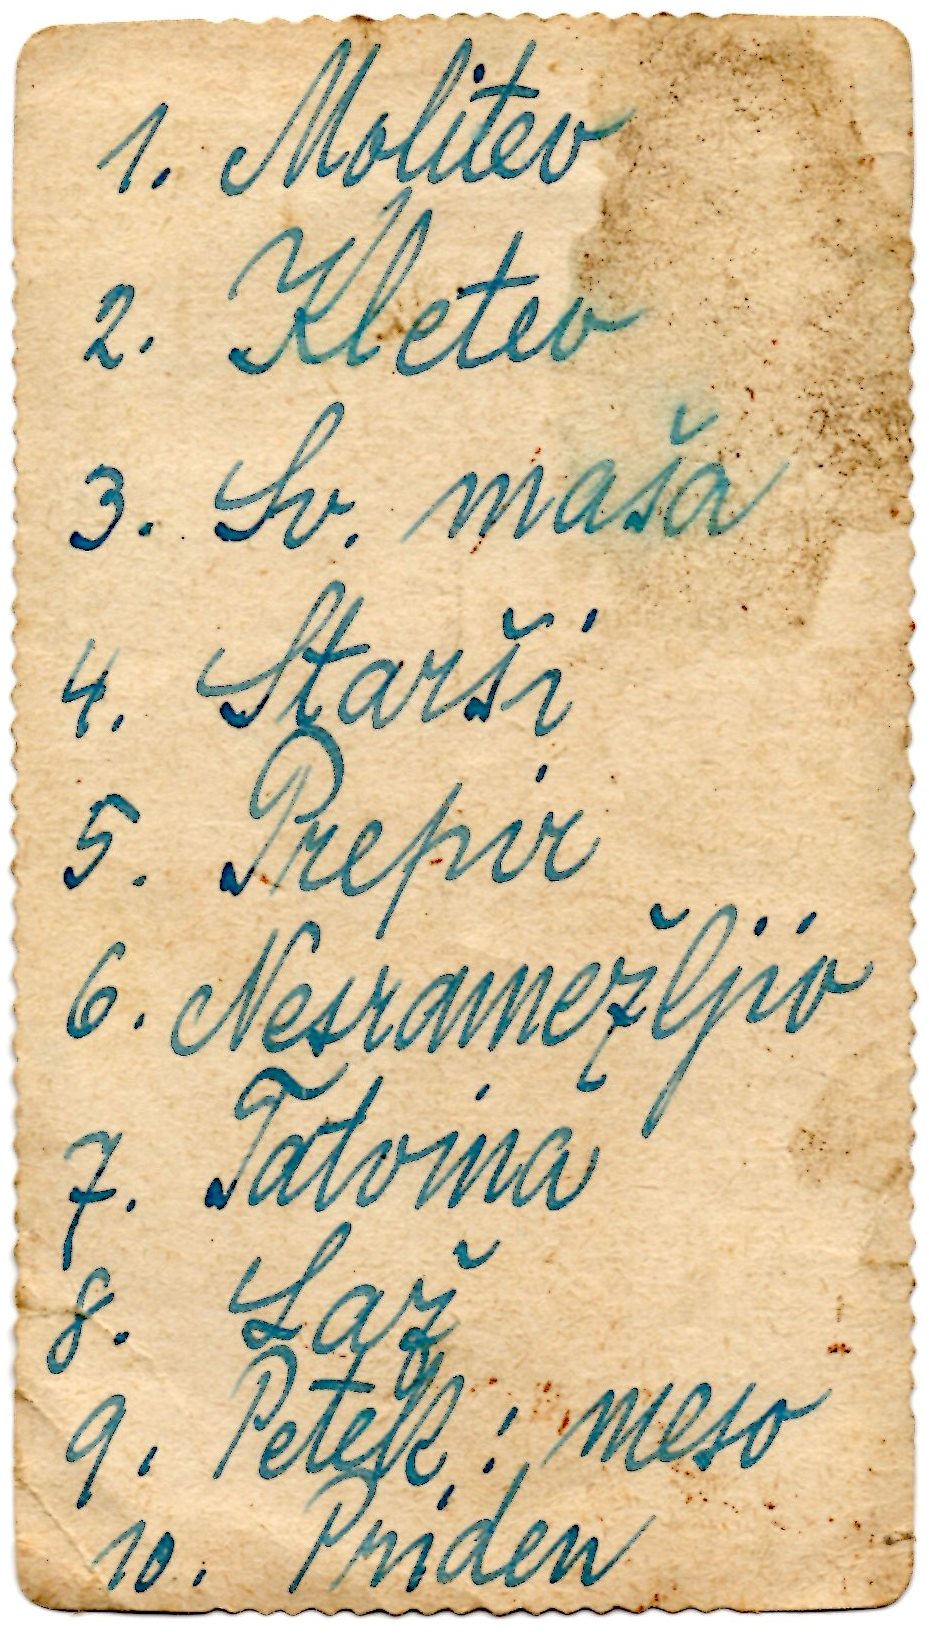 1. Molitev
2. Kletev
3. Sv. maša
4. Starši
5. Prepir
6. Nesramežljiv
7. Tatvina
8. Laž
9. Petek: meso
10. Priden